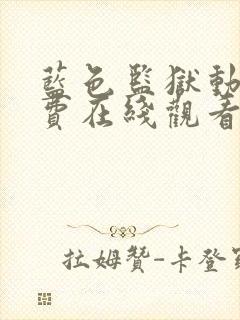 藍色監獄動
費在綫觀看
拉姆贊-卡登